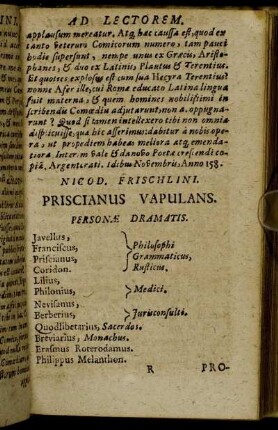 AD LECTOREM.
applausum mereatur. Atq; hac caussa est, quod ex
tanto veterum Comicorum numero, tam pauci
hodie supersunt, nempe unus ex Græcis, Aristo-
phanes, & duo ex Latinis, Plautus & Terentius.
Et quoties explosus est cum sua Hecyra Terentius?
nonne Afer ille, cui Roma educato Latina lingua
fuit materna, & quem homines nobilissimi in
scribendis Comœdiis adjutarunt, non à. oppugna-
runt? Quod si tamen intellexero tibi non omnia
displicuisse, quæ hic asserimus: dabitur à nobis ope-
ra, ut propediem habeas meliora atq; emenda-
tiora. Interim vale & da novo Poetæ crescendi co-
piã. Argentorati, idibus Novembris, Anno 158.
NICOD. FRISCHLINI.
PRISCIANUS VAPULANS.
PERSONÆ DRAMATIS.
Javellus,
Franciscus, Philosophi
Priscianus, Grammaticus,
Coridon. Rusticus.
Lilius,
Philonius, Medici.
Nevisanus,
Berberius, Jurisconsulti.
Quodlibetarius, Sacerdos.
Breviarius, Monachus.
Erasmus Roterodamus.
Philippus Melanthon.
R PRO-